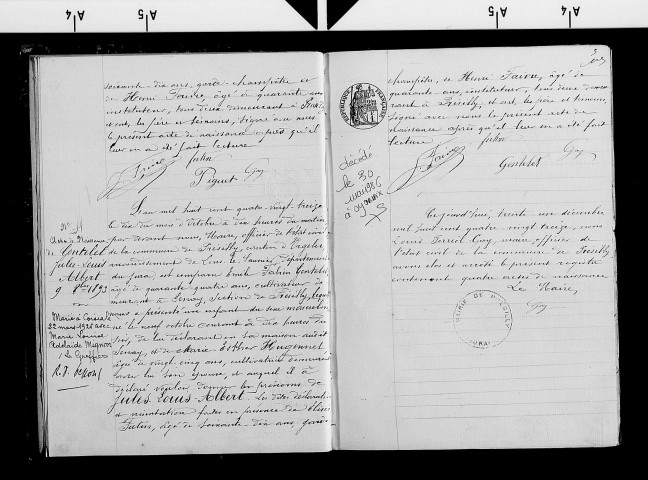 soixante-dix ans, garde-champêtre et
de Henri Faivre, âgé de quarante ans
instituteur, tous deux demeurant à
et ont, les père et témoins, signé avec nous
le présent acte de naissance après qu'il
leur en a été fait lecture
Faivre Juhn
Piquet Guy
N° 4
Acte de Naissance
de Gentelet
Jules Louis
Albert
9 8bre 1893
Marié à
22 mai 1920 avec
Marie Louise
Adelaïde Mignot
Le Greffier
L'an mil huit cent quatre-vingt-treize
le dix du mois d'octobre à dix heures du matin
par devant nous, Maire, officier de l'état civil
de la commune de Fresilly, canton d'Orgelet
arrondissement de Lons le Saunier, département
du Jura, est comparu Gentelet
âgé de quarante quatre ans, cultivateur
meurant à Senay, Section de Presilly, lequel
nous a présenté un enfant du sexe masculin
né le neuf octobre courant à dix heures du
soir, de lui déclarant en sa maison audit
Senay, et de Marie Esther Huguenet
âgée de vingt cinq ans, cultivatrice demeurant
avec lui son épouse, et auquel il a
déclaré vouloir donner les prénoms de
Jules Louis Albert. Les dites déclaration
et présentation faites en présence de
âgé de soixante-dix ans, garde-
champêtre, et Henri Faivre, âgé de
quarante ans, instituteur, tous deux demeu
rant à Presilly, et ont, les père et témoins,
signé avec nous le présent acte de
naissance après qu'il leur en a été fait
lecture Juhn
Faivre Gentelet Guy
RÉPUBLIQUE FRANÇAISE
décédé
le 30
mai 1986
à Oyonnax
Ce jourd'hui, trente un décembre
mil huit cent quatre vingt treize, nous
Louis Guy, maire, officier de
l'état civil de la commune de Presilly
avons clos et arrêté le présent registre
contenant quatre actes de naissance
Le Maire,
Guy
MAIRIE DE PRESILLY
JURA
A4
A5
A5
A4